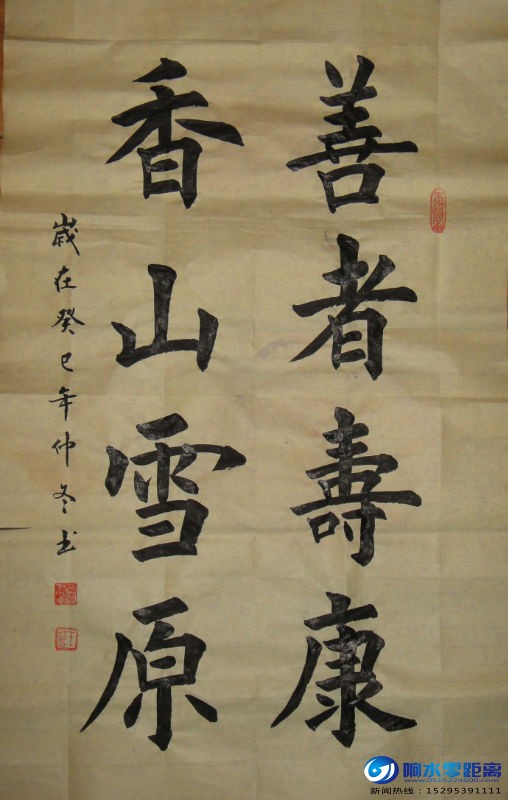 善者壽康
香山雪原
歲在癸巳年仲冬书
响水零距离
www.0515224600.com
新闻热线：15295391111